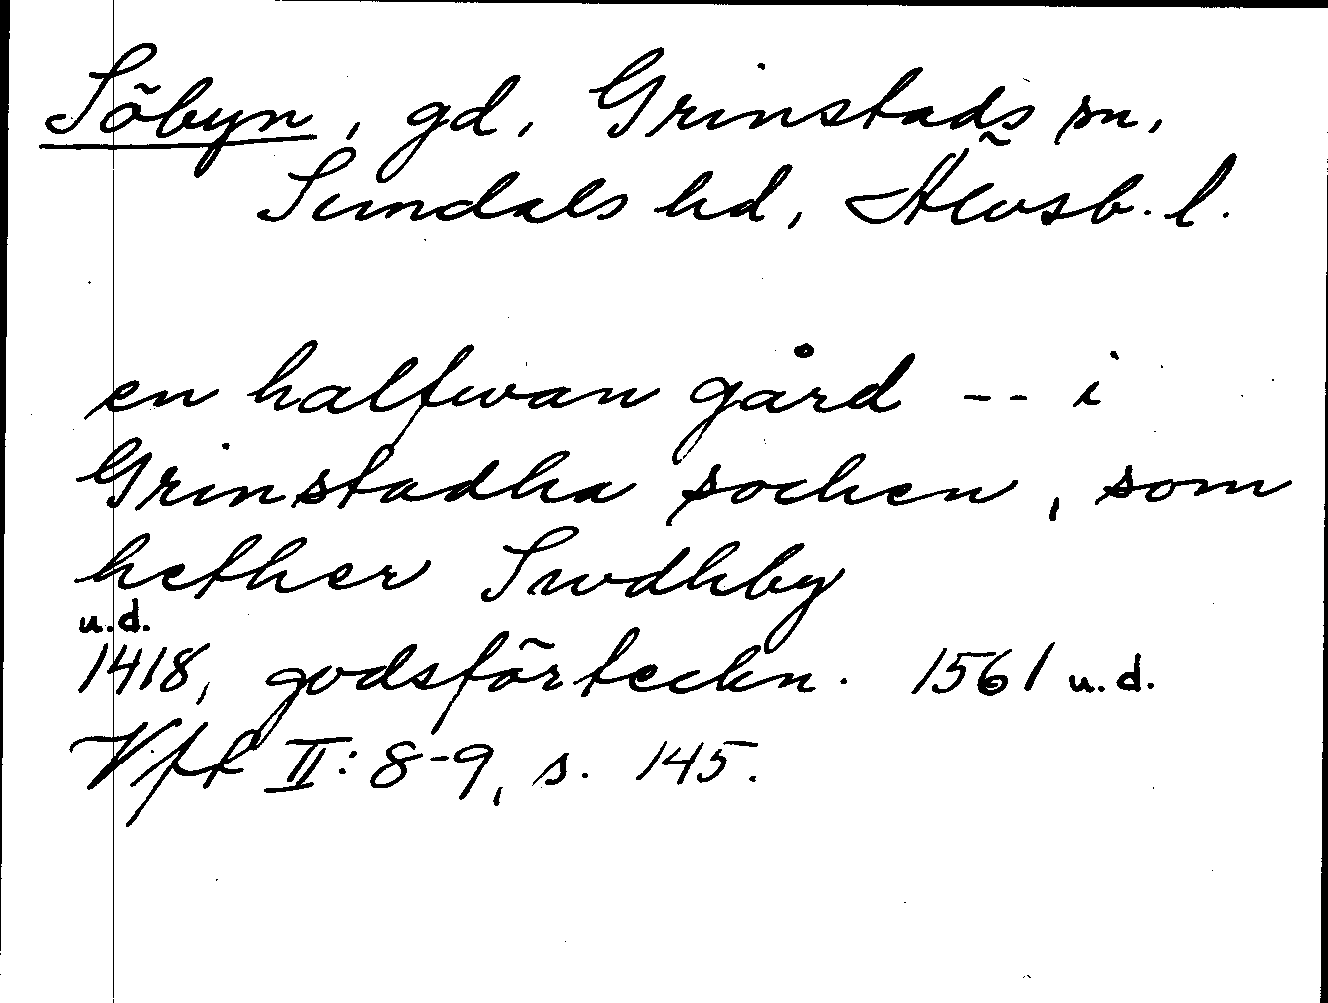 Söbyn, gd, Grinstads sn,
Sundals hd, Älvsb. l.
en halfwan gård -- i
Grinstadha sochen, som
hether Swdhby
u.d.
1418, godsförteckn. 1561 u.d.
Vff II: 8-9, s. 145.